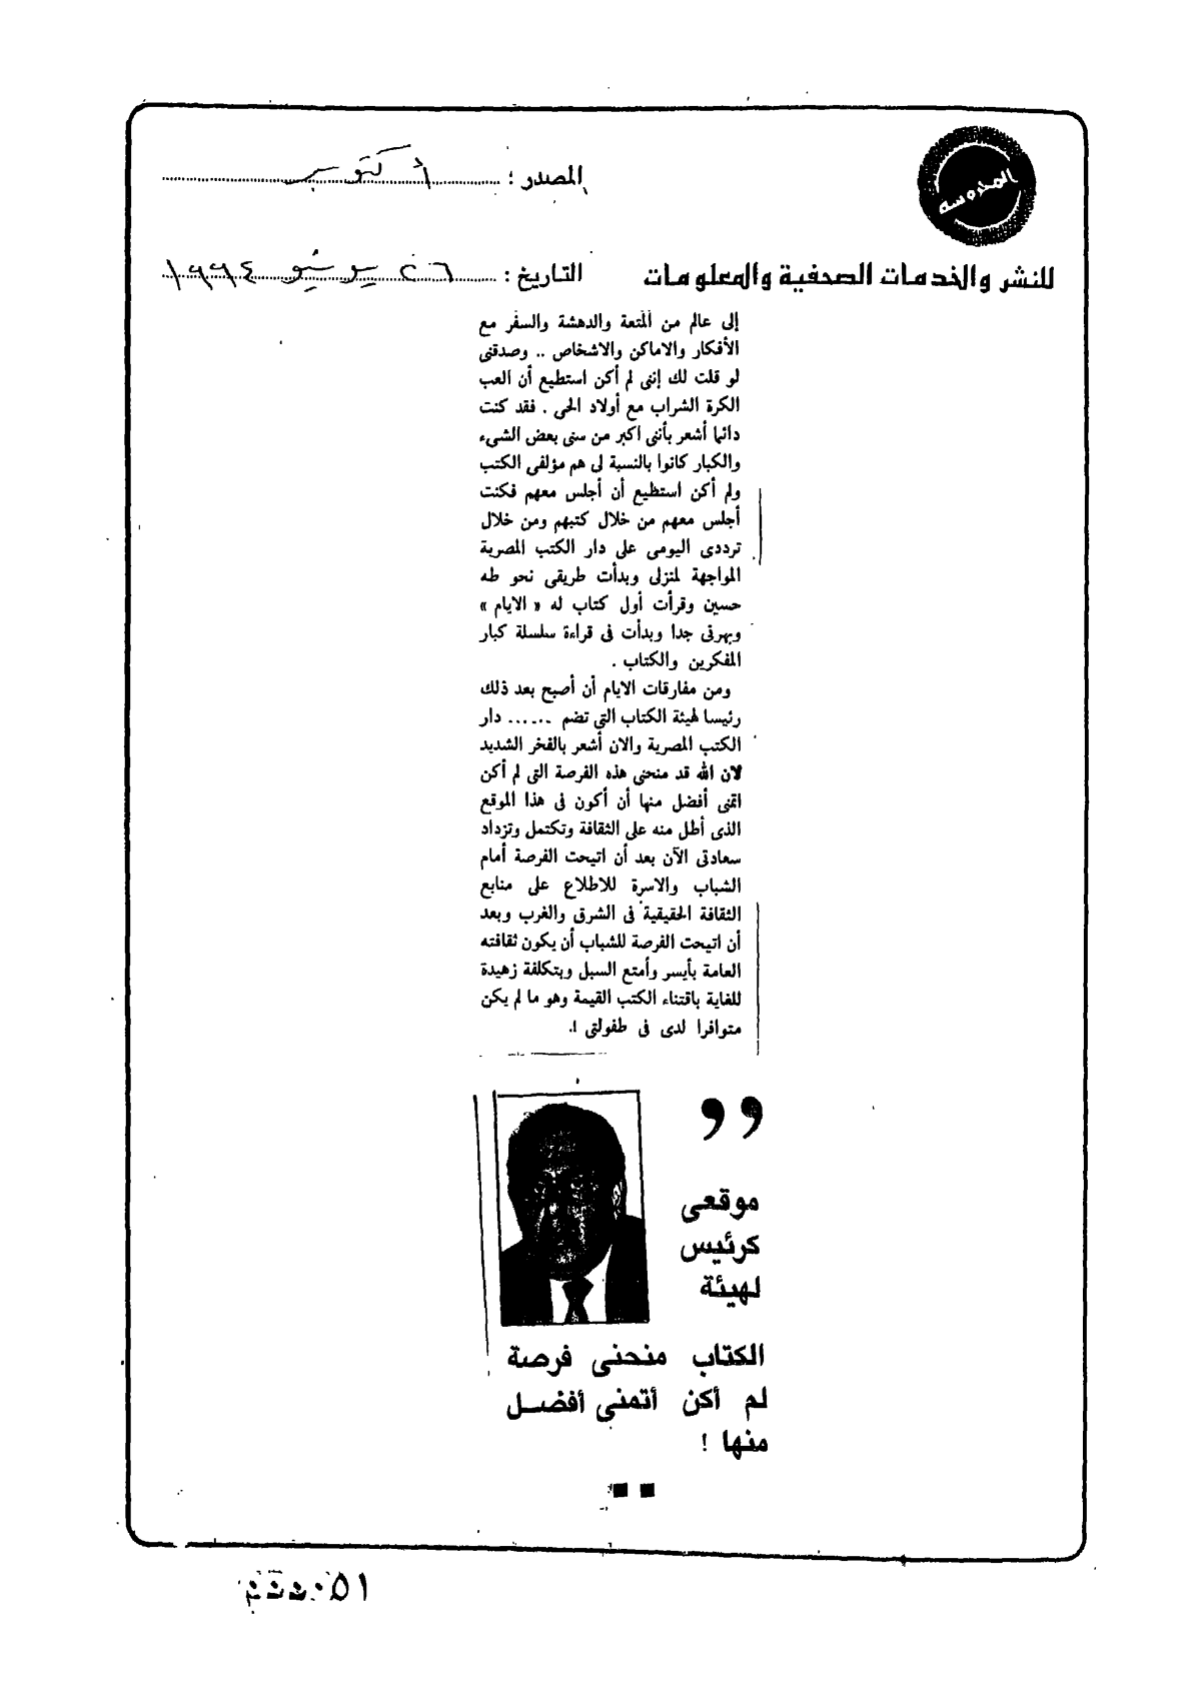 المحروسه
المصدر : أكتوبر
للنشر والخدمات الصحفية والمعلومات
التاريخ : ٢٦ يونيو ١٩٩٤
إلى عالم من المتعة والدهشة والسفر مع
الأفكار والاماكن والاشخاص .. وصدقنى
لو قلت لك إننى لم أكن استطيع أن العب
الكرة الشراب مع أولاد الحى . فقد كنت
دائما أشعر بأننى اكبر من سنى بعض الشىء
والكبار كانوا بالنسبة لى هم مؤلفى الكتب
ولم أكن استطيع أن أجلس معهم فكنت
أجلس معهم من خلال كتبهم ومن خلال
ترددى اليومى على دار الكتب المصرية
المواجهة لمنزلى وبدأت طريقى نحو طه
حسين وقرأت أول كتاب له « الايام »
وبهرنى جدا وبدأت فى قراءة سلسلة كبار
المفكرين والكتاب .
ومن مفارقات الايام أن أصبح بعد ذلك
رئيسا لهيئة الكتاب التى تضم ...... دار
الكتب المصرية والان أشعر بالفخر الشديد
لان الله قد منحنى هذه الفرصة التى لم أكن
اتمنى أفضل منها أن أكون فى هذا الموقع
الذى أطل منه على الثقافة وتكتمل وتزداد
سعادتى الآن بعد أن اتيحت الفرصة أمام
الشباب والاسرة للاطلاع على منابع
الثقافة الحقيقية فى الشرق والغرب وبعد
أن اتيحت الفرصة للشباب أن يكون ثقافته
العامة بأيسر وأمتع السبل وبتكلفة زهيدة
للغاية باقتناء الكتب القيمة وهو ما لم يكن
متوافرا لدى فى طفولتى !.
,,
موقعى
كرئيس
لهيئة
الكتاب منحنى فرصة
لم أكن أتمنى أفضل
منها !